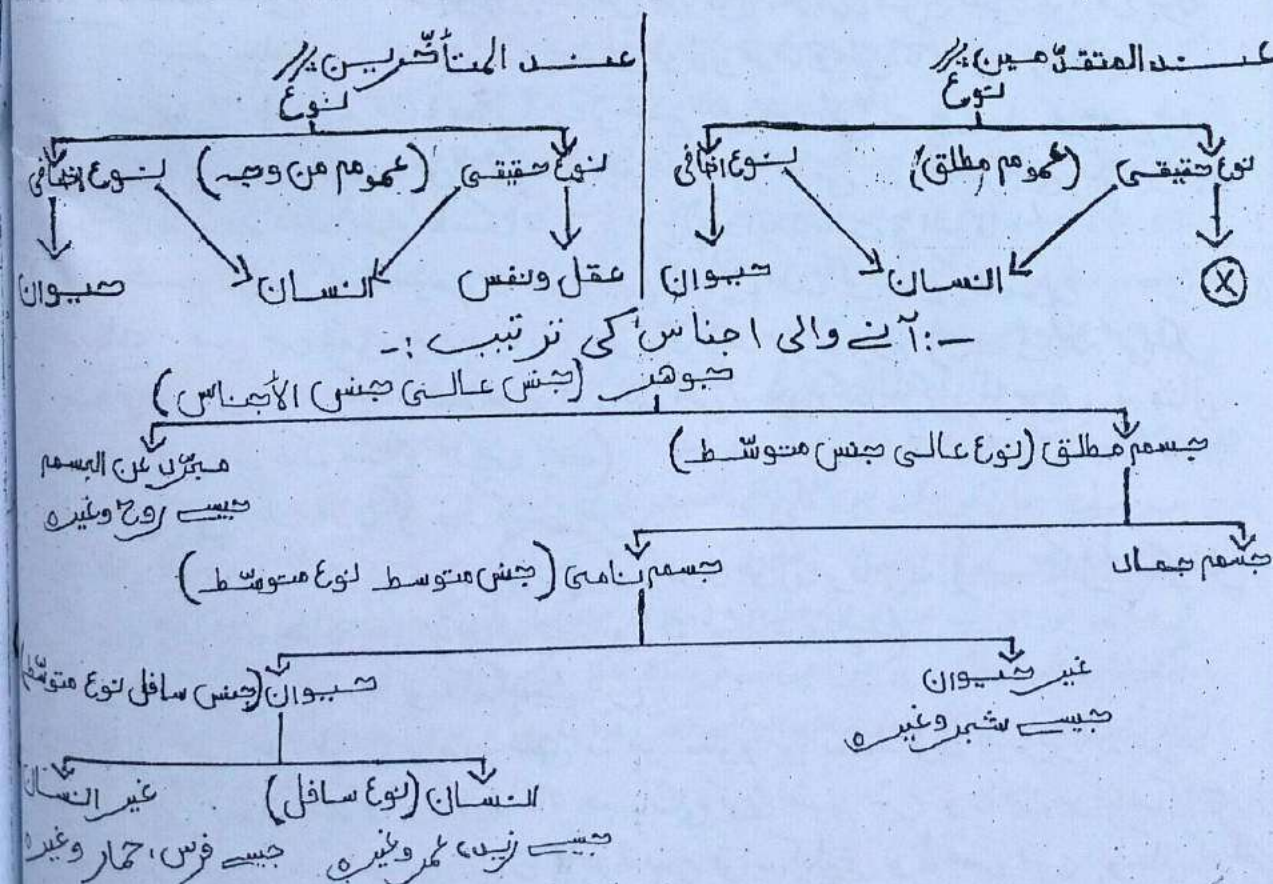 عند المتقدّمین:
نوع
نوع حقیقی (عموم مطلق) نوع اضافی
X انسان حیوان
عند المتأخّرین:
نوع
نوع حقیقی (عموم من وجہ) نوع اضافی
عقل ونفس انسان حیوان
-: آنے والی اجناس کی ترتیب :-
جوھر (جنس عالی جنس الأجناس)
جسم مطلق (نوع عالی جنس متوسّط) مجرّد عن الجسم
جیسے روح وغیرہ
جسم جماد جسم نامی (جنس متوسط نوع متوسّط)
غیر حیوان حیوان (جنس سافل نوع متوسّط)
جیسے شجر وغیرہ
انسان (نوع سافل) غیر انسان
جیسے زید، عمر وغیرہ جیسے فرس، حمار وغیرہ